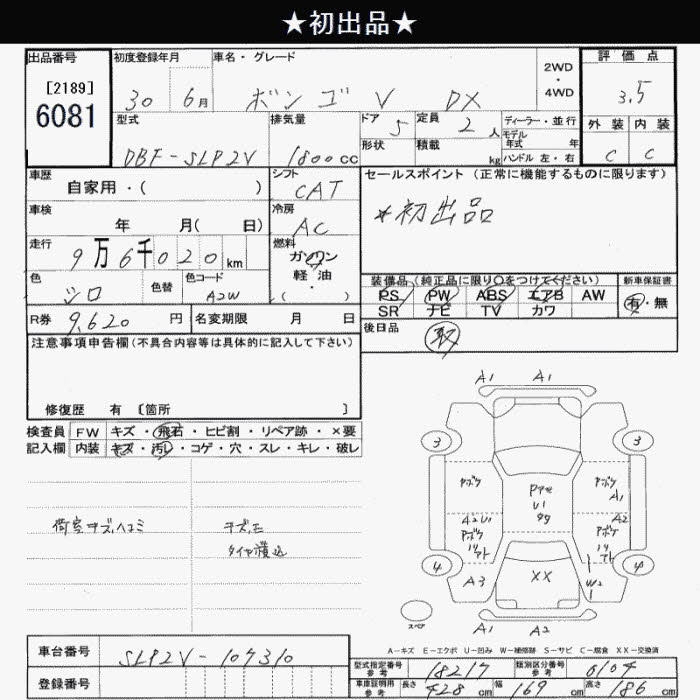 ★初出品★
出品番号 初度登録年月 車名・グレード 2WD ・ 4WD 評価点
[2189] 6081 30 6月 ボンゴ V DX 3.5
型式 排気量 ドア 5 定員 2人 ディーラー・並行 外装 内装
DBF-SLP2V 1800cc 形状 積載 kg モデル年式 年 ハンドル 左・右 C C
車歴 自家用・( ) シフト CAT セールスポイント (正常に機能するものに限ります)
車検 年 月( 日) 冷房 AC *初出品
走行 9万6千020km 燃料 ガソリン 軽・油 ( )
色 シロ 色替 色コード A2W 装備品(純正品に限り○をつけてください) 新車保証書
PS PW ABS エアB AW 有・無
SR ナビ TV カワ
R券 9,620円 名変期限 月 日 後日品 取
注意事項申告欄(不具合内容等は具体的に記入して下さい)
修復歴 有 〔箇所 〕
検査員 FW キズ・飛石・ヒビ割・リペア跡・×要
記入欄 内装 キズ・汚レ・コゲ・穴・スレ・キレ・破レ
荷室キズ、ヘコミ
タイヤ積込
A1 A1
3 3
アボケ アボケ A1
U1
A2U1 アボケ A2 アボケ
4 4
A3 XX W2
スペア A1 A2
A-キズ E-エクボ U-凹み W-補修跡 S-サビ C-腐食 XX-交換済
車台番号 SLP2V-107310
登録番号
型式指定番号 参考 18217 類別区分番号 参考 0104
車庫証明用 参考 長さ 428cm 幅 169cm 高さ 186cm